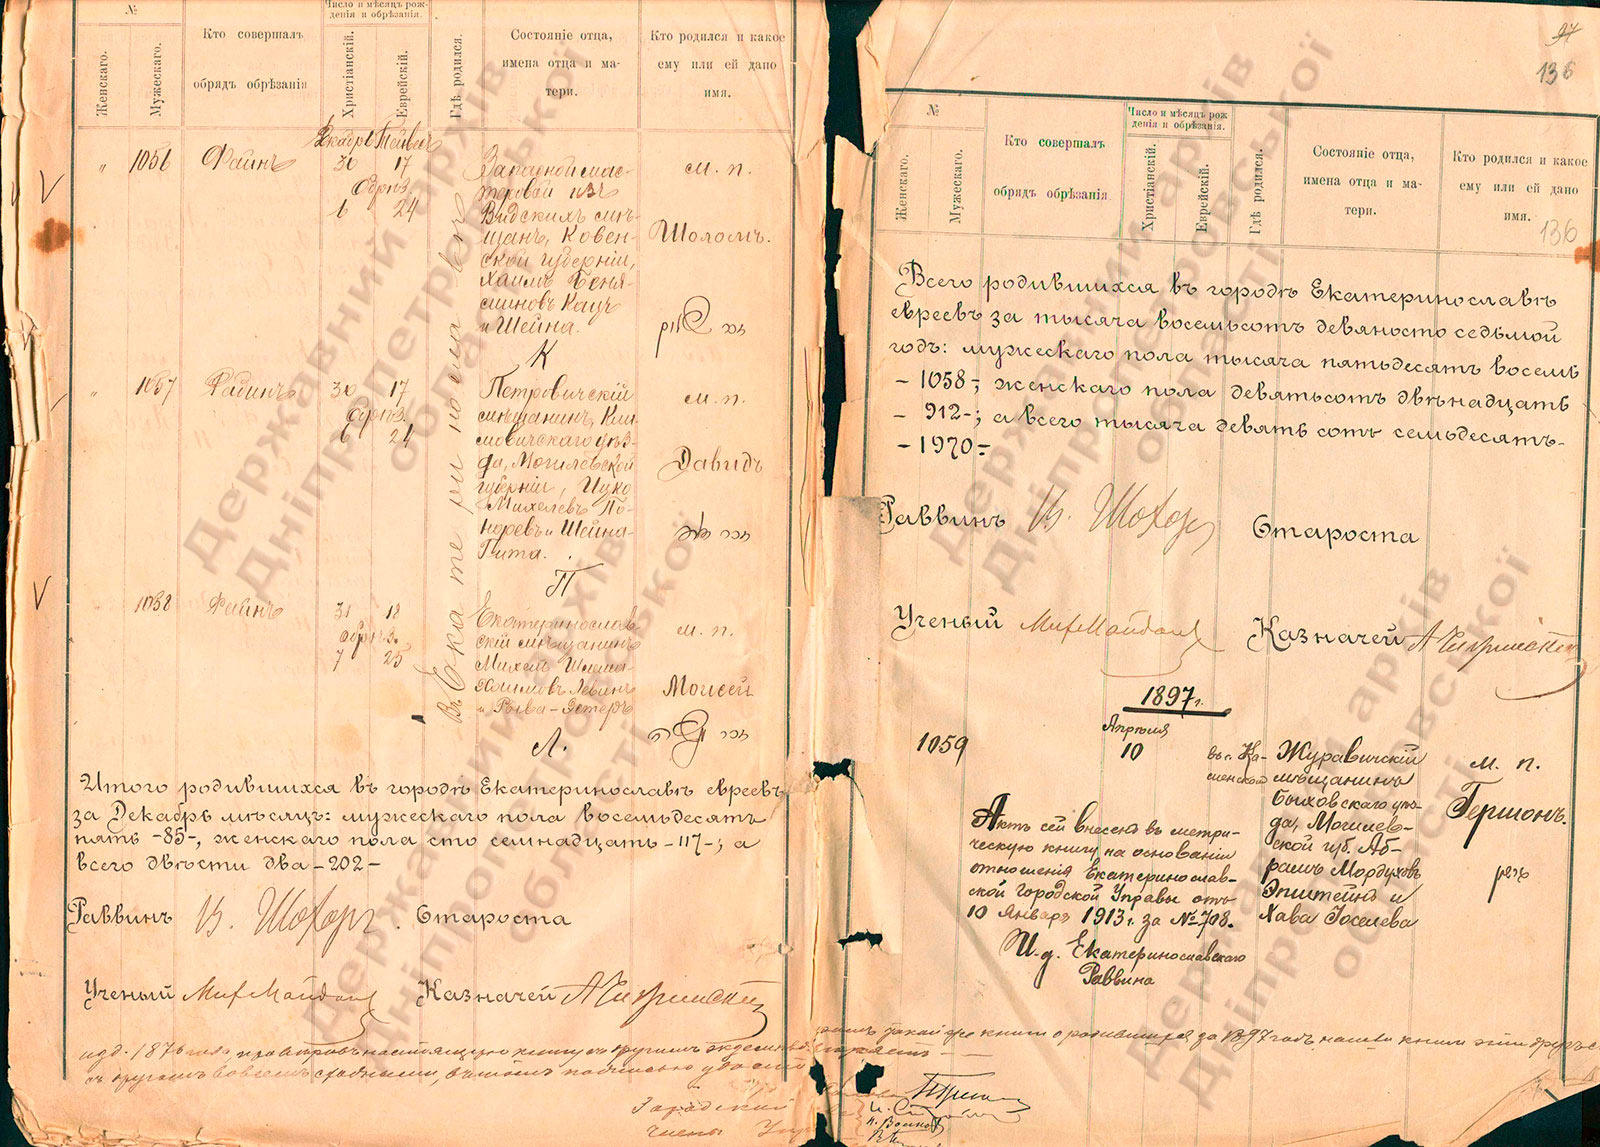 №
Женскаго.
Мужескаго.
Кто совершалъ
обрядъ обрѣзанія
Число и мѣсяцъ рож-
денія и обрѣзанія.
Христіанскій.
Еврейскій.
Гдѣ родился.
Состояніе отца,
имена отца и ма-
тери.
Кто родился и какое
ему или ей дано
имя.
Декабрь Тейвесъ
"
1056
Файнъ
30
17
Обрѣз.
6
24
Запасной мас-
теровой изъ
Видскихъ мѣ-
щанъ, Ковен-
ской губерніи,
Хаимъ Беня-
миновъ Кацъ
и Шейна.
К
м. п.
Шоломъ.
"
1057
Файнъ
30
17
Обрѣз.
6
24
Петровичскій
мѣщанинъ, Кли-
мовичскаго уѣз-
да, Могилевской
губерніи, Ицко
Михелевъ По-
норевъ и Шейна-
Гита.
П
м. п.
Давидъ
1058
Файнъ
31
18
Обрѣз.
7
25
Екатеринослав
скій мѣщанинъ
Михель Шлема-
Хаимовъ Левинъ
и Рыва-Эстеръ
Л.
м. п.
Моисей
Въ Екатеринославѣ
Итого родившихся въ городѣ Екатеринославѣ евреевъ
за Декабрь мѣсяцъ: мужескаго пола восемьдесятъ
пять -85-, женскаго пола сто семнадцать -117-; а
всего двѣсти два -202-
Раввинъ В. Шохоръ. Староста
Ученый Казначей
Державний архів
Дніпропетровської
області
97
136
№
Женскаго.
Мужескаго.
Кто совершалъ
обрядъ обрѣзанія
Число и мѣсяцъ рож-
денія и обрѣзанія.
Христіанскій.
Еврейскій.
Гдѣ родился.
Состояніе отца,
имена отца и ма-
тери.
Кто родился и какое
ему или ей дано
имя.
136
Всего родившихся въ городѣ Екатеринославѣ
евреевъ за тысяча восемьсотъ девяносто седьмой
годъ: мужескаго пола тысяча пятьдесятъ восемь
- 1058 -, женскаго пола девятьсотъ двѣнадцать
- 912 -; а всего тысяча девять сотъ семьдесятъ-
- 1970 -
Раввинъ В. Шохоръ Староста
Ученый Казначей
1897 г.
Апрѣля
1059
10
въ г. Ка-
менской
Журавичскій
мѣщанинъ
Быховскаго уѣз-
да, Могилев-
ской губ. Аб-
рамъ Мордуховъ
Эпштейнъ и
Хава Іоселева
м. п.
Гершонъ.
גרשון
Актъ сей внесенъ въ метри-
ческую книгу на основаніи
отношенія Екатеринослав-
ской Городской Управы отъ
10 Января 1913 г. за № 708.
И. д. Екатеринославскаго
Раввина
Городской
члены